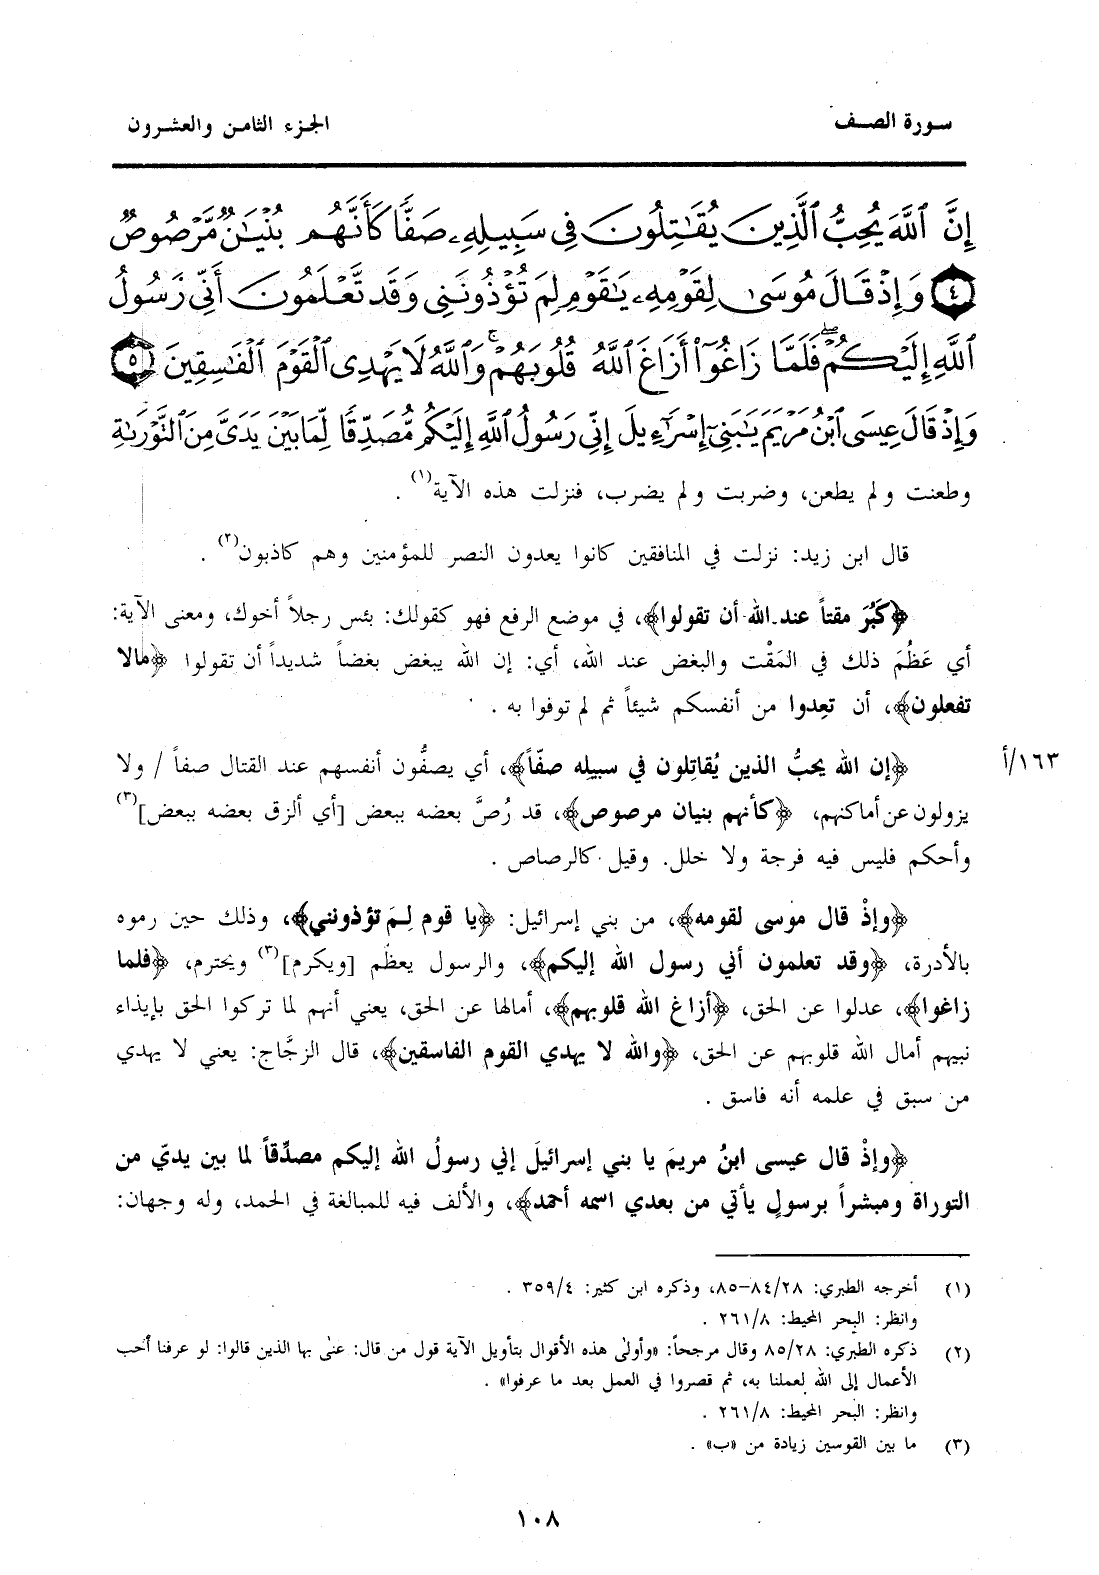 سورة الصف
الجزء الثامن والعشرون
إِنَّ ٱللَّهَ يُحِبُّ ٱلَّذِينَ يُقَٰتِلُونَ فِى سَبِيلِهِۦ صَفًّا كَأَنَّهُم بُنْيَٰنٌ مَّرْصُوصٌ
﴿٤﴾ وَإِذْ قَالَ مُوسَىٰ لِقَوْمِهِۦ يَٰقَوْمِ لِمَ تُؤْذُونَنِى وَقَد تَّعْلَمُونَ أَنِّى رَسُولُ
ٱللَّهِ إِلَيْكُمْ ۖ فَلَمَّا زَاغُوٓا۟ أَزَاغَ ٱللَّهُ قُلُوبَهُمْ ۚ وَٱللَّهُ لَا يَهْدِى ٱلْقَوْمَ ٱلْفَٰسِقِينَ ﴿٥﴾
وَإِذْ قَالَ عِيسَى ٱبْنُ مَرْيَمَ يَٰبَنِىٓ إِسْرَٰٓءِيلَ إِنِّى رَسُولُ ٱللَّهِ إِلَيْكُم مُّصَدِّقًا لِّمَا بَيْنَ يَدَىَّ مِنَ ٱلتَّوْرَىٰةِ
وطعنت ولم يطعن، وضربت ولم يضرب، فنزلت هذه الآية(١) .
قال ابن زيد: نزلت في المنافقين كانوا يعدون النصر للمؤمنين وهم كاذبون(٢) .
﴿كَبُرَ مقتاً عند الله أن تقولوا﴾، في موضع الرفع فهو كقولك: بئس رجلاً أخوك، ومعنى الآية:
أي عَظُمَ ذلك في المَقْت والبغض عند الله، أي: إن الله يبغض بغضاً شديداً أن تقولوا ﴿مالا
تفعلون﴾، أن تعِدوا من أنفسكم شيئاً ثم لم توفوا به .
﴿إن الله يحبُّ الذين يُقاتِلون في سبيله صفّاً﴾، أي يصفُّون أنفسهم عند القتال صفاً / ولا
١٦٣/أ
يزولون عن أماكنهم، ﴿كأنهم بنيان مرصوص﴾، قد رُصَّ بعضه ببعض [أي ألزق بعضه ببعض](٣)
وأحكم فليس فيه فرجة ولا خلل. وقيل كالرصاص .
﴿وإذْ قال موسى لقومه﴾، من بني إسرائيل: ﴿يا قوم لِـمَ تؤذونني﴾، وذلك حين رموه
بالأدرة، ﴿وقد تعلمون أني رسول الله إليكم﴾، والرسول يعظَّم [ويكرم](٣) ويحترم، ﴿فلما
زاغوا﴾، عدلوا عن الحق، ﴿أزاغ الله قلوبهم﴾، أمالها عن الحق، يعني أنهم لما تركوا الحق بإيذاء
نبيهم أمال الله قلوبهم عن الحق، ﴿والله لا يهدي القوم الفاسقين﴾، قال الزجَّاج: يعني لا يهدي
من سبق في علمه أنه فاسق .
﴿وإذْ قال عيسى ابنُ مريمَ يا بني إسرائيلَ إني رسولُ الله إليكم مصدِّقاً لما بين يديّ من
التوراة ومبشراً برسولٍ يأتي من بعدي اسمه أحمد﴾، والألف فيه للمبالغة في الحمد، وله وجهان:
(١) أخرجه الطبري: ٢٨/٨٤–٨٥، وذكره ابن كثير: ٤/٣٥٩ .
وانظر: البحر المحيط: ٨/٢٦١ .
(٢) ذكره الطبري: ٢٨/٨٥ وقال مرجحاً: «وأولى هذه الأقوال بتأويل الآية قول من قال: عنى بها الذين قالوا: لو عرفنا أحب
الأعمال إلى الله لعملنا به، ثم قصروا في العمل بعد ما عرفوا» .
وانظر: البحر المحيط: ٨/٢٦١ .
(٣) ما بين القوسين زيادة من «ب» .
١٠٨